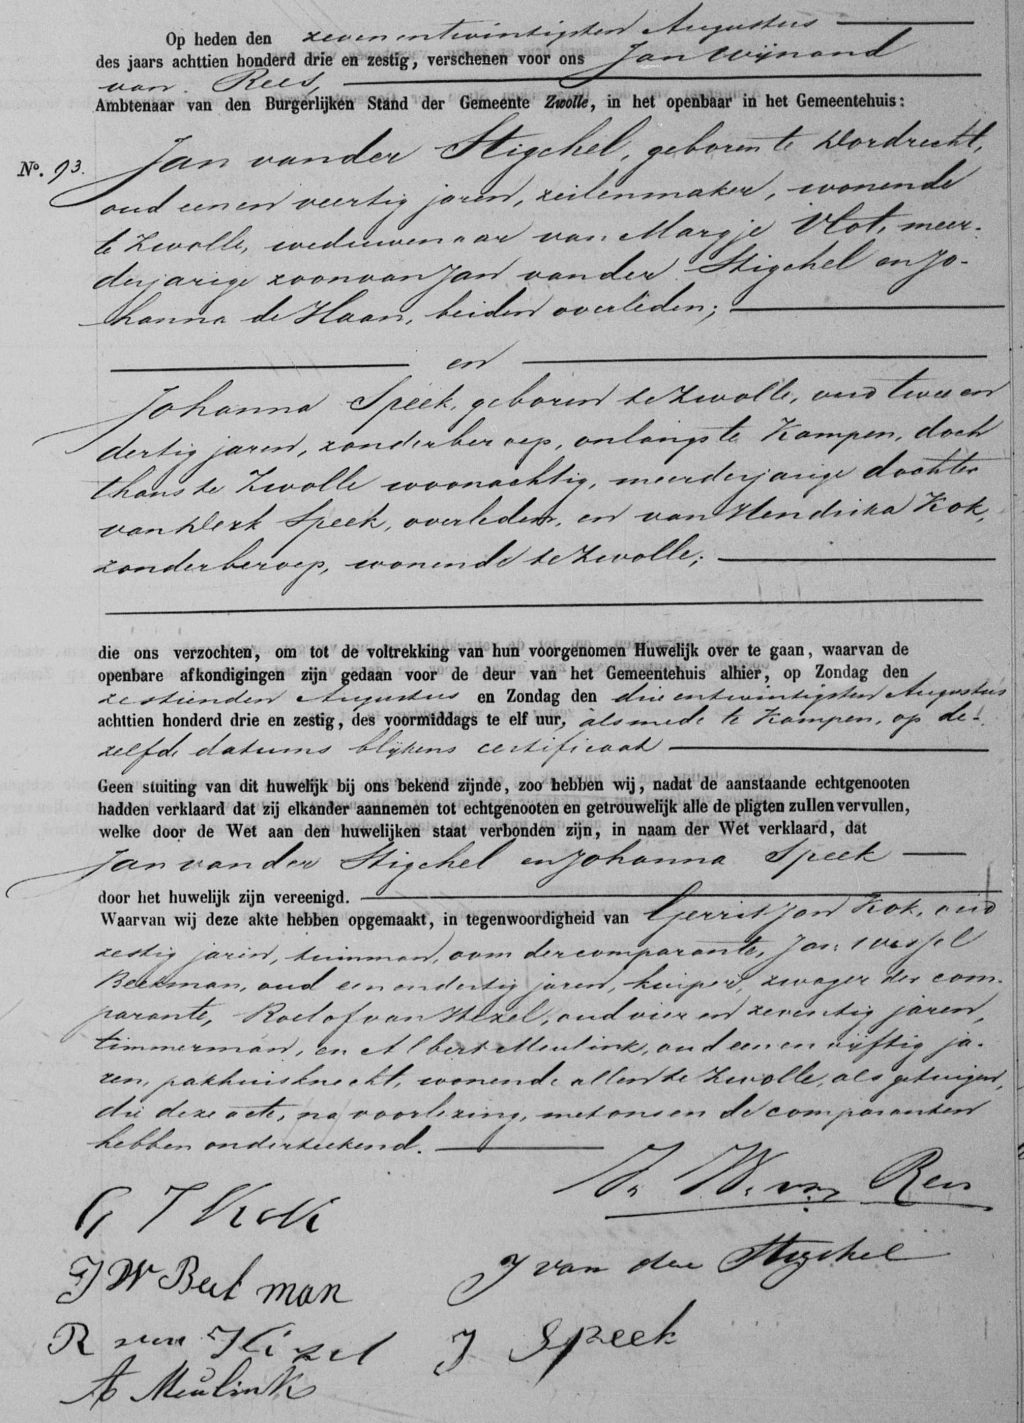 Op heden den zevenentwintigsten Augustus
des jaars achttien honderd drie en zestig, verschenen voor ons Jan Wijnand
van Rees,
Ambtenaar van den Burgerlijken Stand der Gemeente Zwolle, in het openbaar in het Gemeentehuis:
No. 93. Jan van der Stigchel, geboren te Dordrecht,
oud een en veertig jaren, zeilenmaker, wonende
te Zwolle, weduwenaar van Margje Vlot, meer-
derjarige zoon van Jan van der Stigchel en Jo-
hanna de Haan, beiden overleden;
en
Johanna Speek, geboren te Zwolle, oud twee en
dertig jaren, zonder beroep, onlangs te Kampen, doch
thans te Zwolle woonachtig, meerderjarige dochter
van Derk Speek, overleden, en van Hendrika Kok,
zonder beroep, wonende te Zwolle;
die ons verzochten, om tot de voltrekking van hun voorgenomen Huwelijk over te gaan, waarvan de
openbare afkondigingen zijn gedaan voor de deur van het Gemeentehuis alhier, op Zondag den
zestienden Augustus en Zondag den drie entwintigsten Augustus
achttien honderd drie en zestig, des voormiddags te elf uur, alsmede te Kampen, op de-
zelfde datums blijkens certificaat
Geen stuiting van dit huwelijk bij ons bekend zijnde, zoo hebben wij, nadat de aanstaande echtgenooten
hadden verklaard dat zij elkander aannemen tot echtgenooten en getrouwelijk alle de pligten zullen vervullen,
welke door de Wet aan den huwelijken staat verbonden zijn, in naam der Wet verklaard, dat
Jan van der Stigchel en Johanna Speek
door het huwelijk zijn vereenigd.
Waarvan wij deze akte hebben opgemaakt, in tegenwoordigheid van Gerrit Jan Kok, oud
zestig jaren, tuinman, oom der comparante, Jan Wessel
Beekman, oud een en dertig jaren, kuiper, zwager der com-
parante, Roelof van Hezel, oud vier en zeventig jaren,
timmerman, en Albert Meulink, oud een en vijftig ja-
ren, pakhuisknecht, wonende allen te Zwolle, als getuigen,
die deze acte, na voorlezing, met ons en de comparanten
hebben onderteekend.
J. W. van Rees
G J Kok
J van der Stigchel
J W Beekman
R van Hezel
J Speek
A Meulink